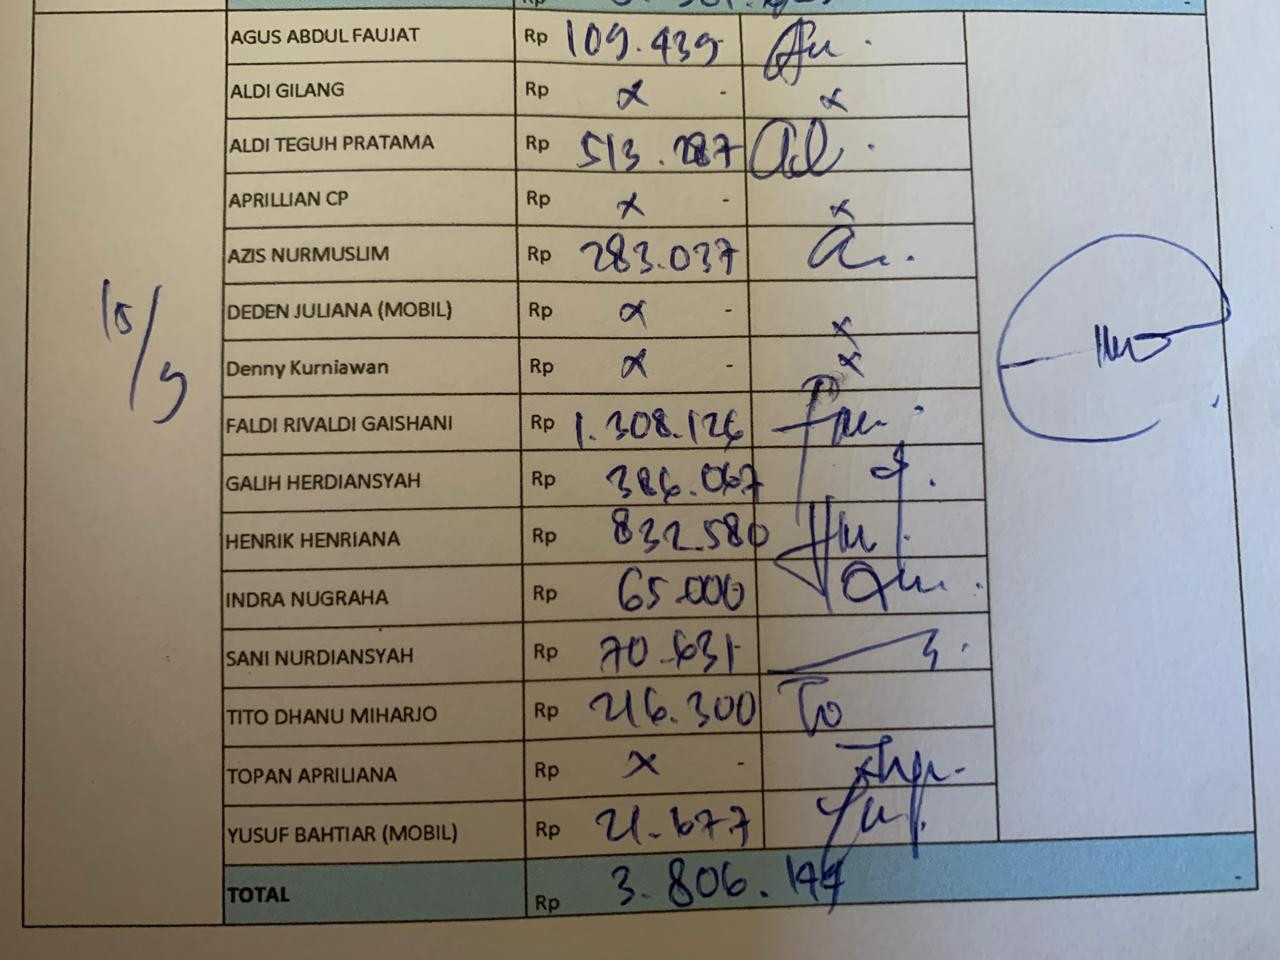 AGUS ABDUL FAUJAT Rp 109.439
ALDI GILANG Rp x - x
ALDI TEGUH PRATAMA Rp 513.287
APRILLIAN CP Rp x - x
AZIS NURMUSLIM Rp 283.037
DEDEN JULIANA (MOBIL) Rp x - x
Denny Kurniawan Rp x - x
15/9
FALDI RIVALDI GAISHANI Rp 1.308.126
GALIH HERDIANSYAH Rp 386.067
HENRIK HENRIANA Rp 832.580
INDRA NUGRAHA Rp 65.000
SANI NURDIANSYAH Rp 70.631
TITO DHANU MIHARJO Rp 216.300 To
TOPAN APRILIANA Rp x - x
YUSUF BAHTIAR (MOBIL) Rp 21.677
TOTAL Rp 3.806.144 -